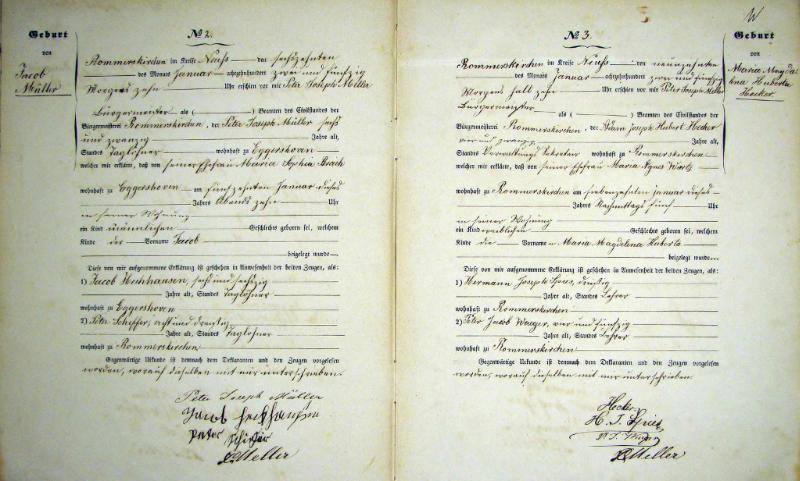 № 2.
Geburt
von
Jacob
Müller
Rommerskirchen im Kreise Neuß den sechszehnten
des Monats Januar achtzehnhundert zwei und fünfzig
Morgens zehn Uhr erschien vor mir Peter Joseph Meller
Bürgermeister als ( ) Beamten des Civilstandes der
Bürgermeisterei Rommerskirchen, der Peter Joseph Müller sechs
und zwanzig Jahre alt,
Standes Taglöhner wohnhaft zu Eggershoven
welcher mir erklärte, daß von seiner Ehefrau Maria Sophia
wohnhaft zu Eggershoven am fünfzehnten Januar dieses
Jahres Abends zehn Uhr
in seiner Wohnung
ein Kind männlichen Geschlechts geboren sei, welchem
Kinde der Vorname Jacob
beigelegt wurde
Diese von mir aufgenommene Erklärung ist geschehen in Anwesenheit der beiden Zeugen, als:
1) Jacob Heckhausen, sechs und sechszig
Jahre alt, Standes Taglöhner
wohnhaft zu Eggershoven
2) Peter Scheffer, acht und dreißig
Jahre alt, Standes Taglöhner
wohnhaft zu Rommerskirchen
Gegenwärtige Urkunde ist demnach dem Deklaranten und den Zeugen vorgelesen
worden, worauf dieselben mit mir unterschrieben.
Peter Joseph Müller
Jacob Heckhausen
Peter
Meller
№ 3.
Geburt
von
Maria Magda
lena Huberta
Hecker.
Rommerskirchen im Kreise Neuß den neunzehnten
des Monats Januar achtzehnhundert zwei und fünfzig
Morgens halb zehn Uhr erschien vor mir Peter Joseph Meller
Bürgermeister als ( ) Beamten des Civilstandes der
Bürgermeisterei Rommerskirchen, der Adam Joseph Hubert Hecker
vier und zwanzig Jahre alt,
Standes Verwaltungs Sekretair wohnhaft zu Rommerskirchen
welcher mir erklärte, daß von seiner Ehefrau Maria Agnes Wirtz
wohnhaft zu Rommerskirchen am siebenzehnten Januar dieses
Jahres Nachmittags fünf Uhr
in seiner Wohnung
ein Kind weiblichen Geschlechts geboren sei, welchem
Kinde die Vorname n Maria Magdalena Huberta
beigelegt wurde
Diese von mir aufgenommene Erklärung ist geschehen in Anwesenheit der beiden Zeugen, als:
1) Hermann Joseph Spies, dreißig
Jahre alt, Standes Lehrer
wohnhaft zu Rommerskirchen
2) Peter Jacob vier und fünfzig
Jahre alt, Standes Lehrer
wohnhaft zu Rommerskirchen
Gegenwärtige Urkunde ist demnach dem Deklaranten und den Zeugen vorgelesen
worden, worauf dieselben mit mir unterschrieben.
Hecker
H. J. Spies
Meller